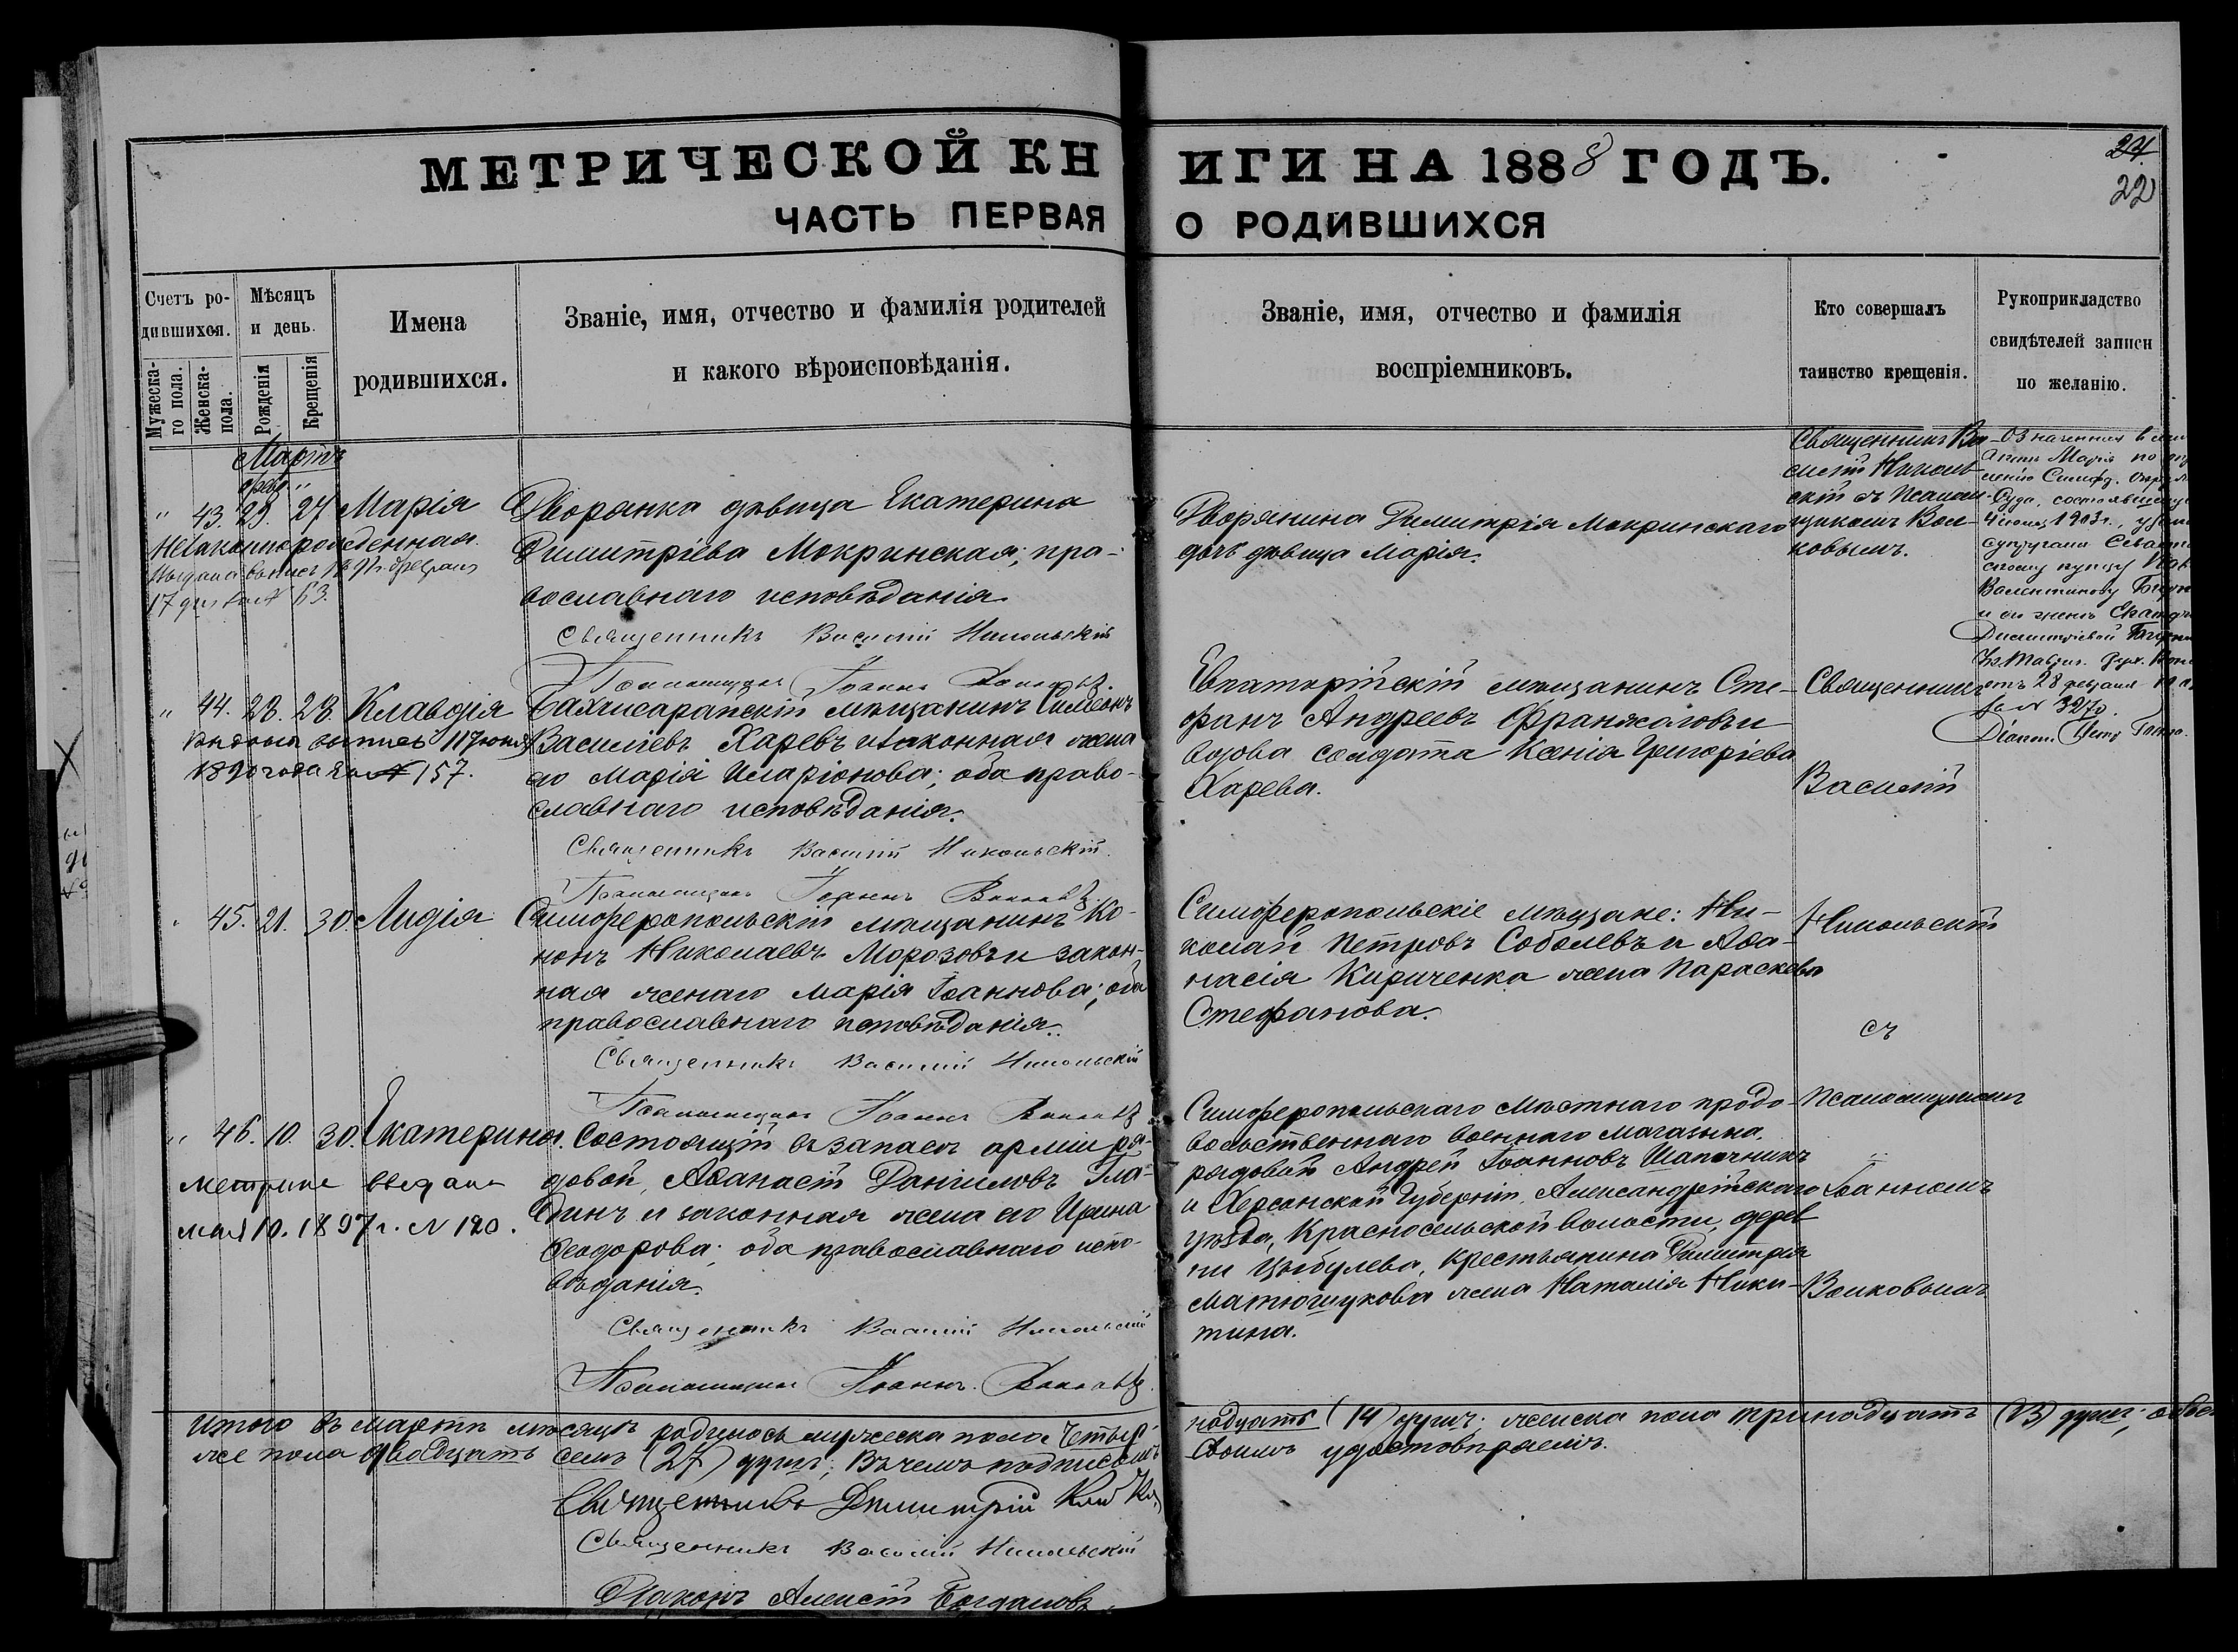 МЕТРИЧЕСКОЙ КНИГИ НА 1888 ГОДЪ.
ЧАСТЬ ПЕРВАЯ О РОДИВШИХСЯ
24
22
Счетъ родившихся.
Мужеска-го пола.
Женска- пола.
Мѣсяцъ и день.
Рожденія
Крещенія
Имена
родившихся.
Званіе, имя, отчество и фамилія родителей
и какого вѣроисповѣданія.
Званіе, имя, отчество и фамилія
воспріемниковъ.
Кто совершалъ
таинство крещенія.
Рукоприкладство
свидѣтелей записи
по желанію.
Мартъ
февр.
" 43. 29. 27 Марія
Незаконнорожденная.
17 дня за № 63.
Дворянка дѣвица Екатерина
Димитріева Мокринская; пра-
вославнаго исповѣданія.
Священникъ Василій Никольскій
Псаломщикъ Іоаннъ Волковъ.
Дворянина Димитрія Мокринскаго
дочь дѣвица Марія.
Священникъ Ва-
силій Николь-
скій съ псалом-
щикомъ Вол-
ковымъ.
Означенная
Марія по
Симф. Окр.
Суда, состоявшемуся
4 1903 г.,
супругами
купцу
Валентинову
и его женѣ Екатер.
Димитріевой
отъ 28 февраля
за № 3270.
" 44. 28. 28. Клавдія
Выдана выпись 11 Іюня
1890 года за № 157.
Бахчисарайскій мѣщанинъ Симеонъ
Василіевъ Харевъ и законная жена
его Марія Иларіонова; оба право-
славнаго исповѣданія.
Священникъ Василій Никольскій.
Псаломщикъ Іоаннъ Волковъ
Евпаторійскій мѣщанинъ Сте-
фанъ Андреевъ Франжоловъ и
вдова солдата Ксенія Григоріева
Харева.
Священникъ
Василій
" 45. 21. 30. Лидія
Симферопольскій мѣщанинъ Ко-
нонъ Николаевъ Морозовъ и закон-
ная жена его Марія Іоаннова; оба
православнаго исповѣданія.
Священникъ Василій Никольскій
Псаломщикъ Іоаннъ Волковъ
Симферопольскіе мѣщане: Ни-
колай Петровъ Соболевъ и Аѳа-
насія Кириченка жена Параскева
Стефанова.
Никольскій
съ
" 46. 10. 30. Екатерина.
Метрика выдана
мая 10. 1897 г. № 120.
Состоящій въ запасѣ арміи ря-
довой, Аѳанасій Даніиловъ Гла-
динъ и законная жена его Ирина
Ѳеодорова; оба православнаго испо-
вѣданія.
Священникъ Василій Никольскій
Псаломщикъ Іоаннъ Волковъ.
Симферопольскаго мѣстнаго продо-
вольственнаго военнаго магазина,
рядовой Андрей Іоанновъ Шапочникъ
и Херсонской Губерніи, Александрійскаго
уѣзда, Красносельской волости, дерев
ни Цыбулева, крестьянина Димитрія
Матюшукова жена Наталія Ники-
тина.
Псаломщикомъ
Іоанномъ
Волковымъ
Итого въ мартѣ мѣсяцѣ родилось мужеска пола четыр-
надцать (14) душъ; женска пола тринадцать (13) душъ; обоего
же пола двадцать семь (27) душъ; Въ чемъ подписомъ
своимъ удостовѣряемъ.
Священникъ Димитрій
Священникъ Василій Никольскій
Діаконъ Алексій Богдановъ.